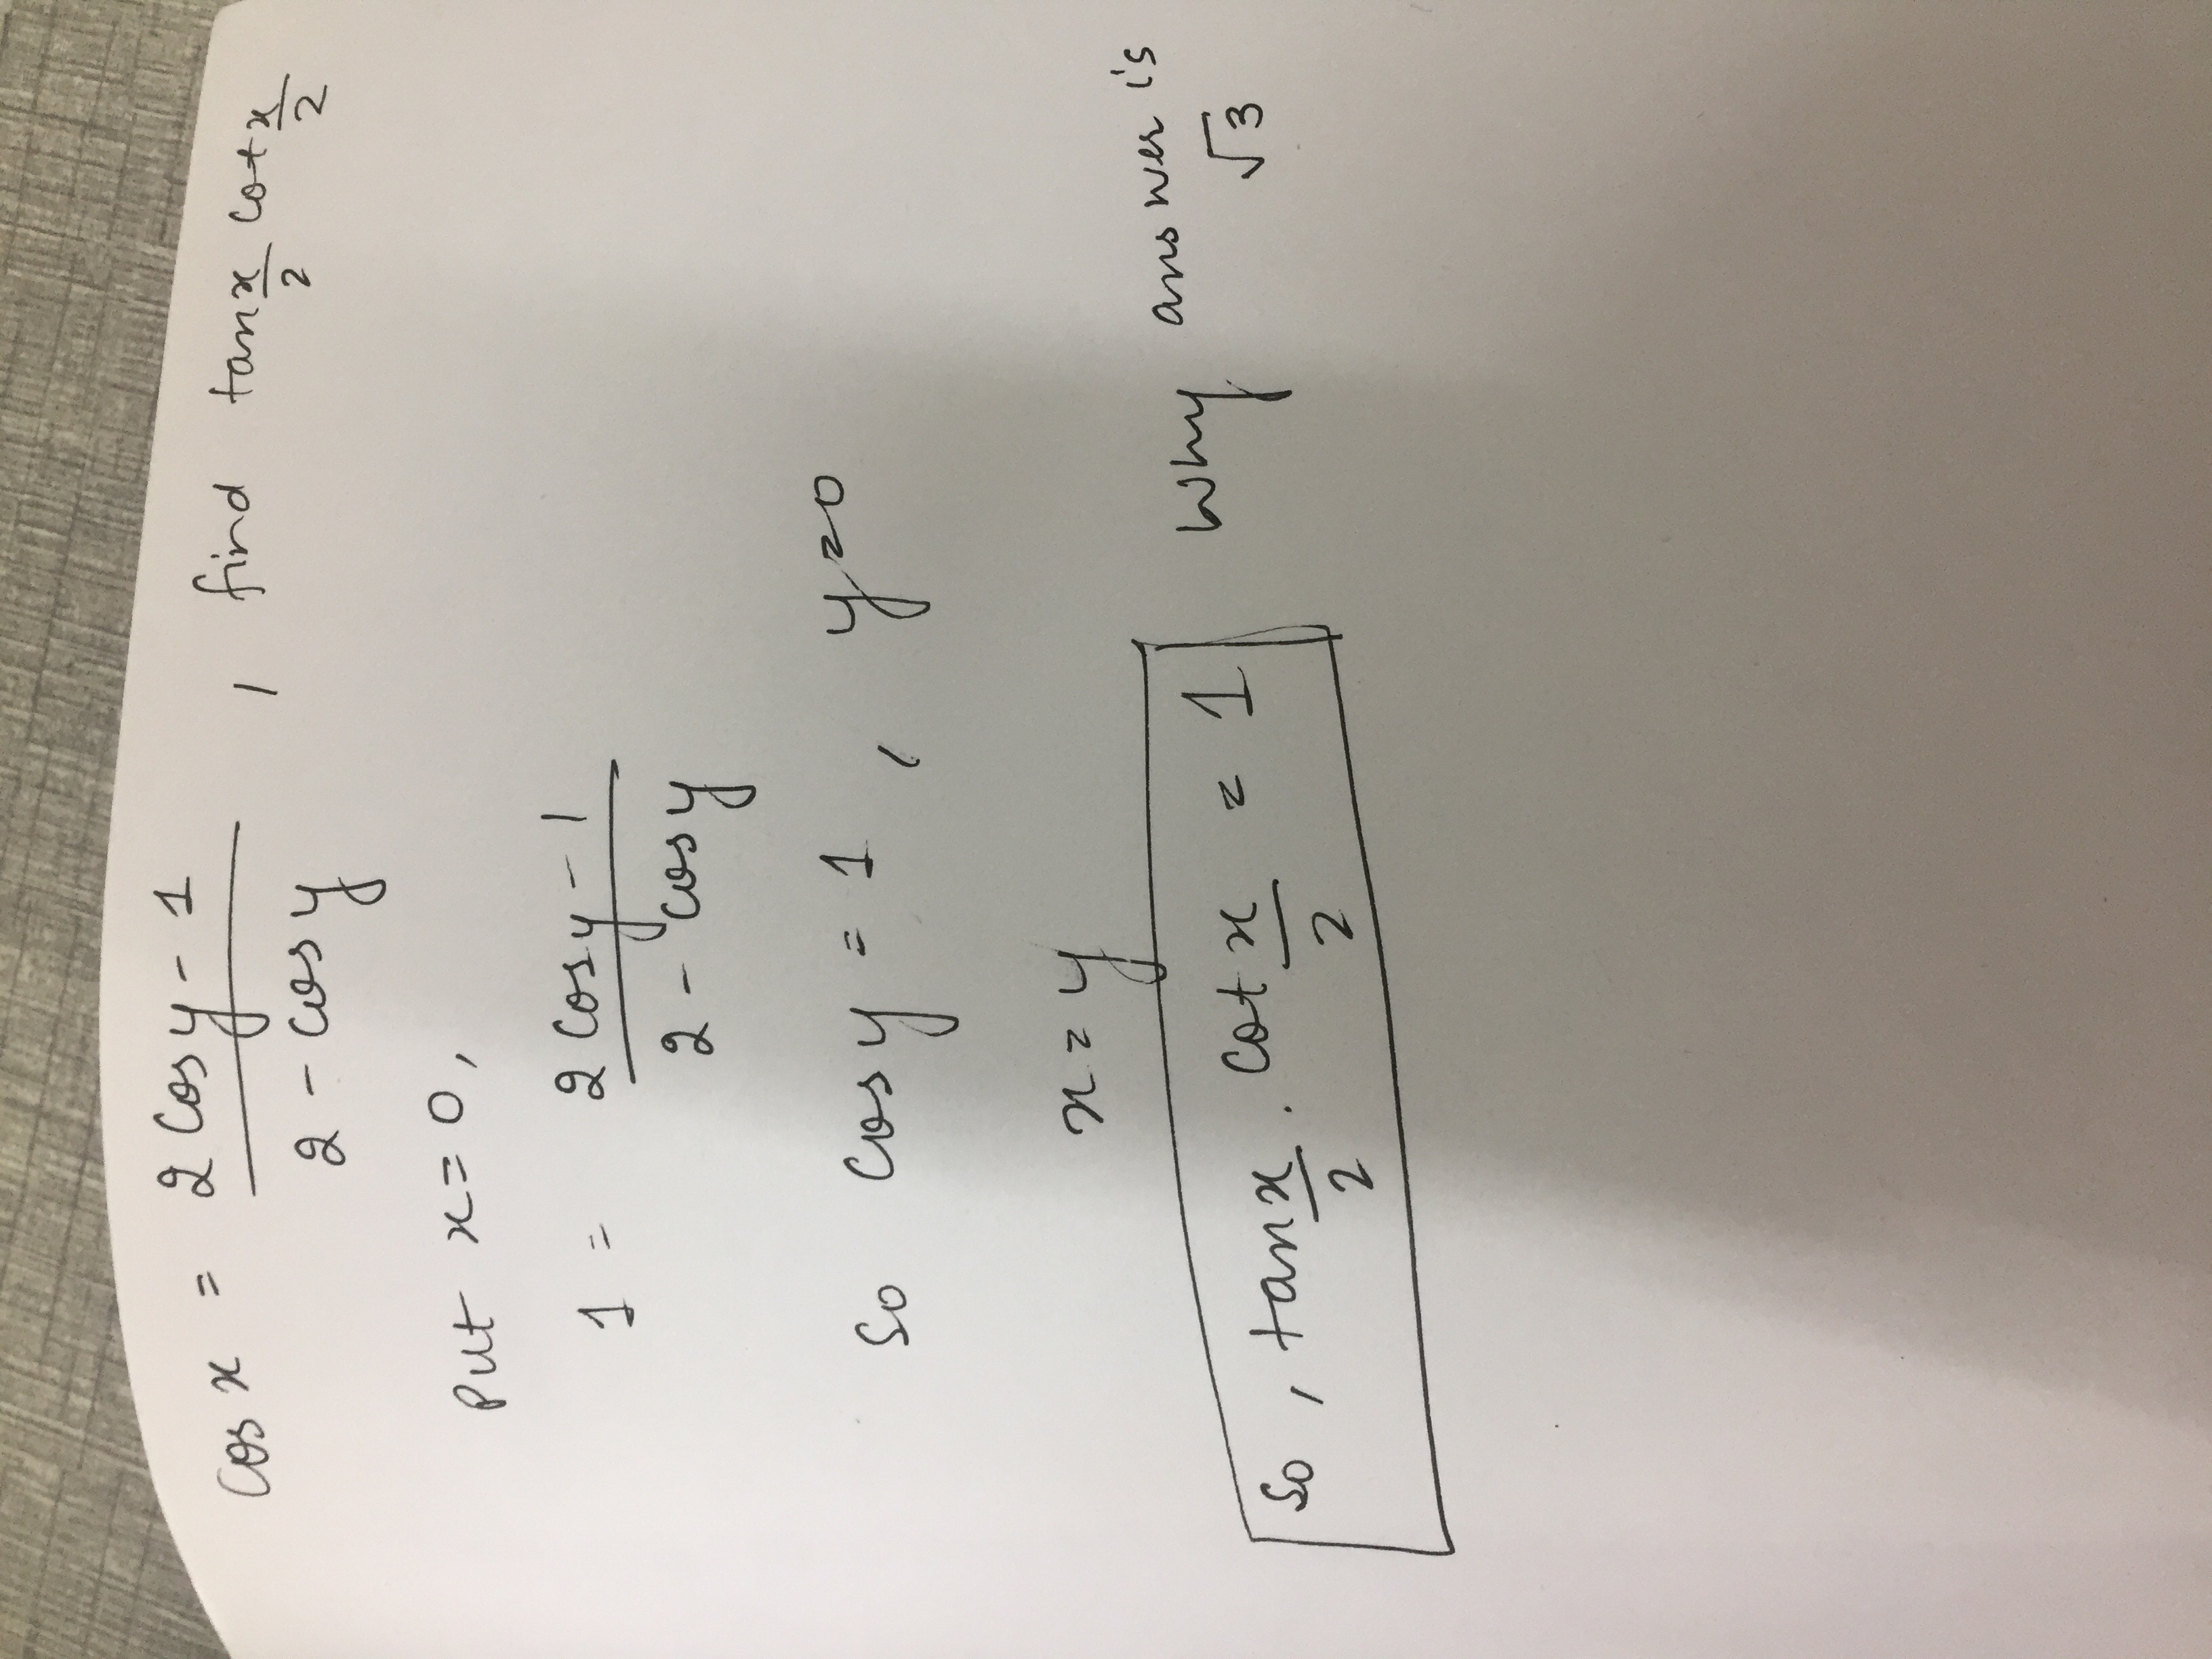 cos x = (2 cos y - 1)/(2 - cos y) , find tan x/2 cot x/2
Put x = 0,
1 = (2 cos y - 1)/(2 - cos y)
So cos y = 1 , y = 0
x = y
So , tan x/2 . cot x/2 = 1 why answer is √3